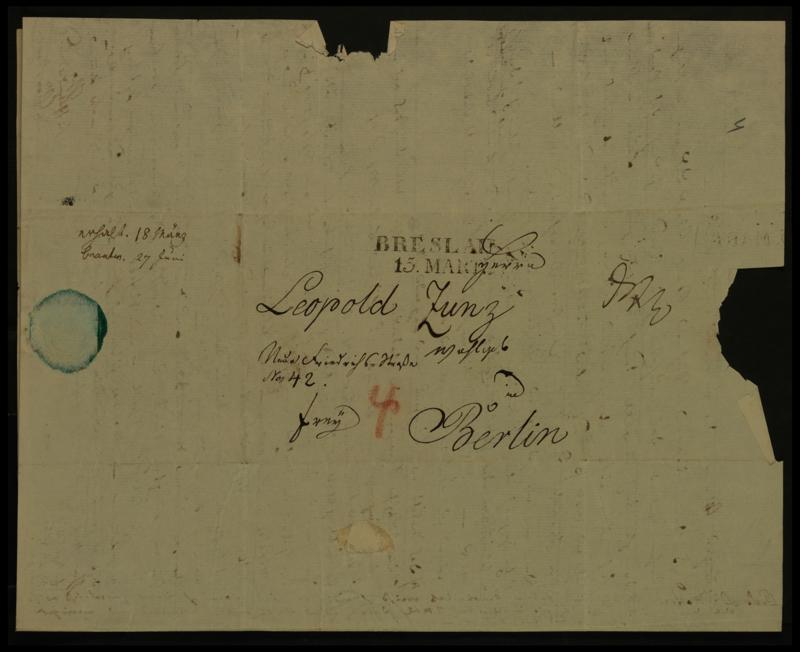 erhalt. 18 März
beantw. 27 Juni
BRESLAU
15. MART
Herrn
Leopold Zunz
wohlgeb
Neue Friedrichs-Straße
No 42.
in
frey
4
Berlin